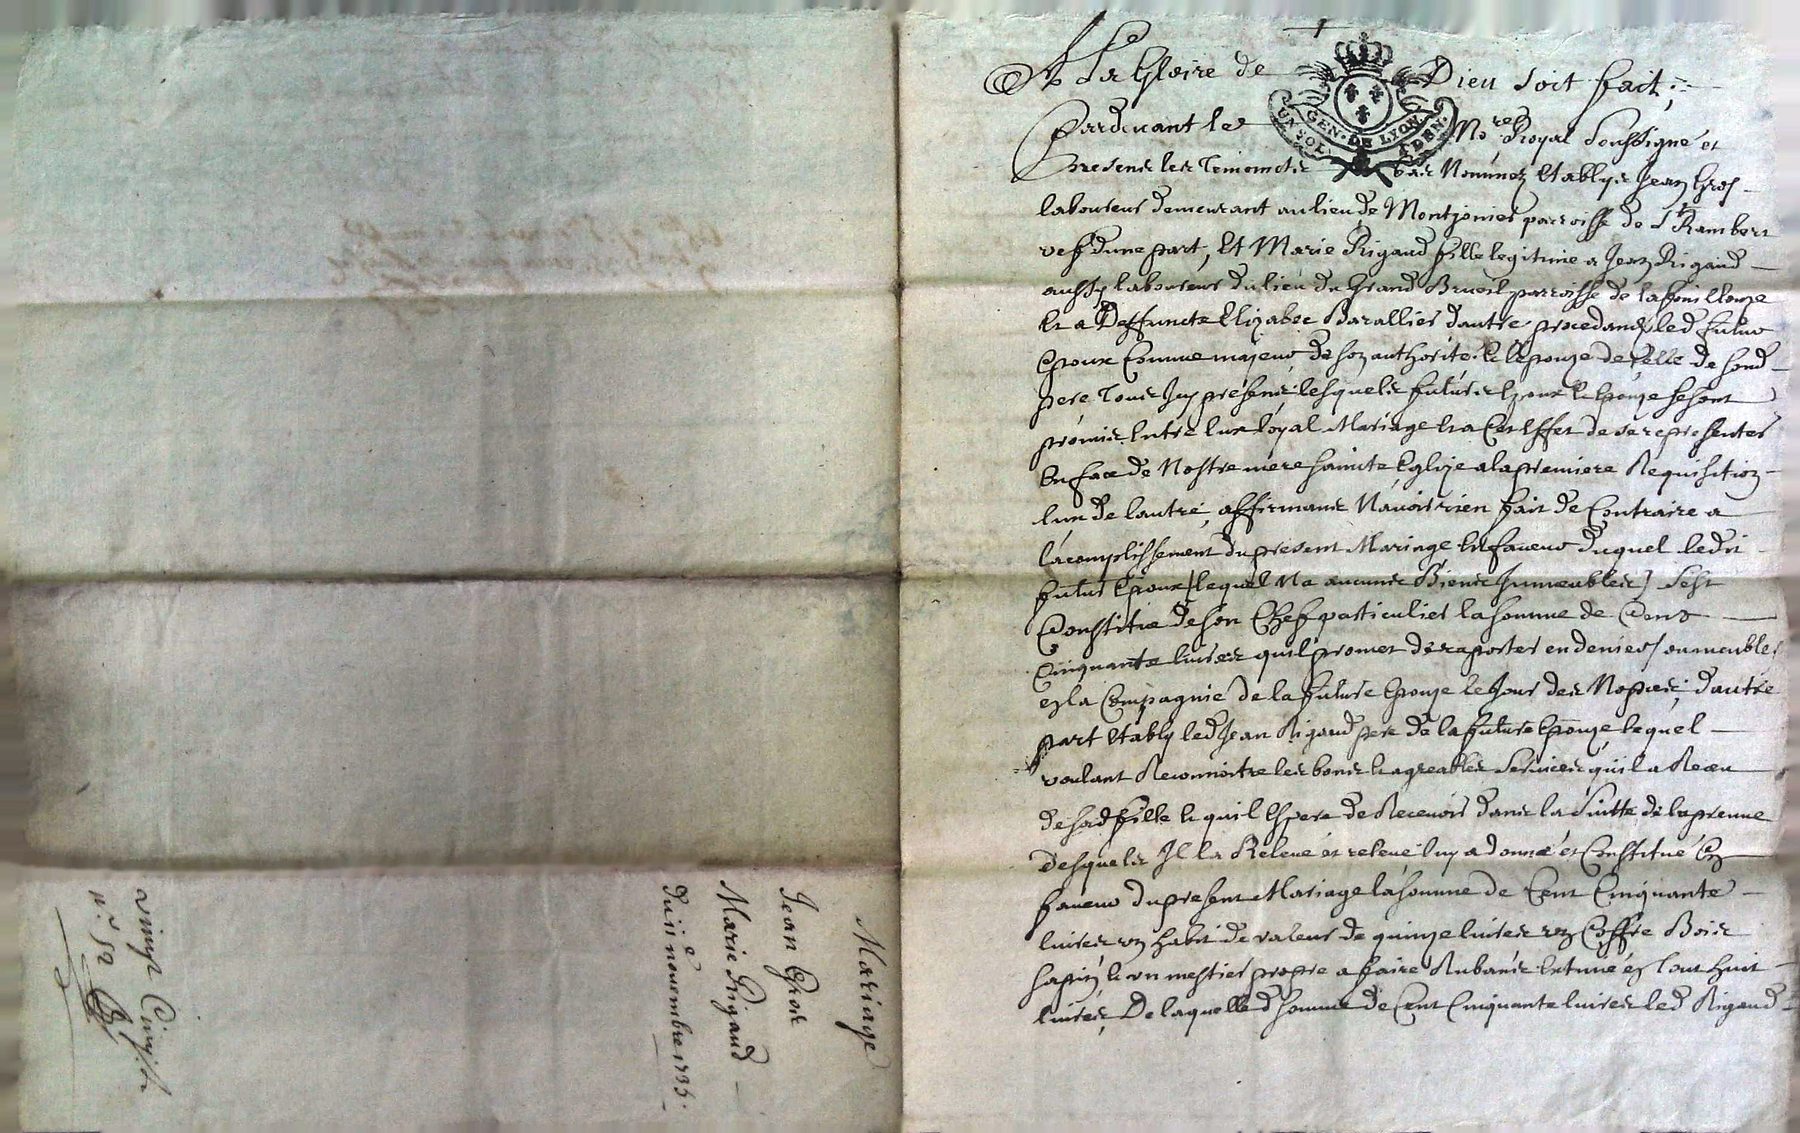 A La Gloire de Dieu Soit fait;
GEN. DE LYON.
Pardevant le No.re Royal Soussigné et
Presens les Temoins bas Nommez Establys Jean Gros
laboureur demeurant au lieu de Montjonier parroisse de St Rambert
vef d'une part, Et Marie Rigaud fille legitime a Jean Rigaud
aussy laboureur du lieu du Grand Brueil parroisse de
Et a Deffuncte Elizabet Barallier d'autre, procedans led futur
Epoux Comme majeur de son authorité, Et l'epouze de celle de sond
pere Tous Icy presens, lesquels futurs Epoux et Epouze se sont
promis Entre Eux loyal Mariage Et a Cet Effet de se representer
En face de Nostre mere sainte Eglize a la premiere Requisition
lun de lautre, affirmant N'avoir rien fait de Contraire a
l'acomplissement du present Mariage En faveur duquel ledit
futur Epoux [lequel Na aucuns Biens Immeubles] Sest
Constitué de son Chef particulier la somme de Cent
Cinquante livres quil promet de raporter en deniers ou meubles
en la Compagnie de la future Epouze le Jour des Nopces, d'autre
part Estably led Jean Rigaud pere de la future Epouze lequel
voulant Reconnoitre les bons et agreables Services qu'il a Receu
de sad fille et quil Espere de Recevoir dans la Suitte de la preuve
desquels Il la Relevé et releve luy a donné et Constitué En
faveur du present Mariage la somme de Cent Cinquante
livres un habit de valeur de quinze livres un Coffre Bois
sapin et un mestier propre a faire Rubans Estimé en tout huit
livres, De laquelle d somme de Cent Cinquante livres led Rigaud
Mariage
Jean Gros
Marie Rigaud
Du 11e novembre 1735.
vingt Cinq
n.° 52